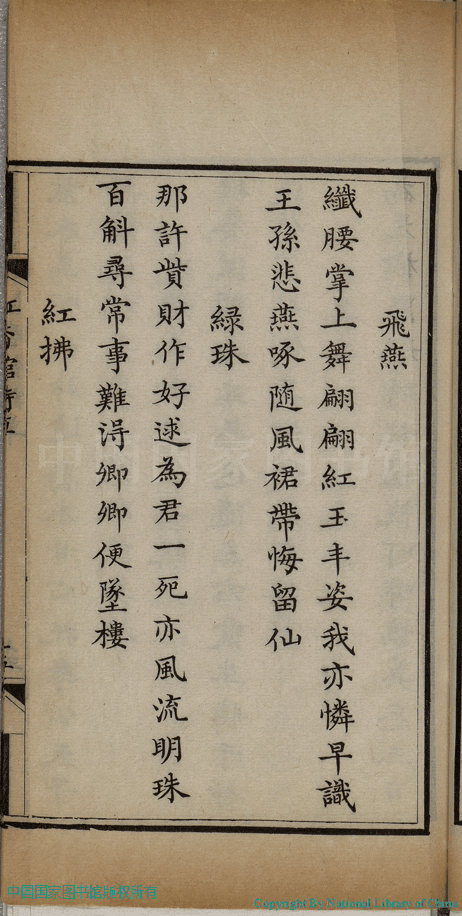 飛燕
纖腰掌上舞翩翩紅玉丰姿我亦憐早識
王孫悲燕啄隨風裙帶悔留仙
緑珠
那許貲財作好逑為君一死亦風流明珠
百斛尋常事難淂卿卿便墜樓
紅拂
中国国家图书馆版权所有
Copyright By National Library of China